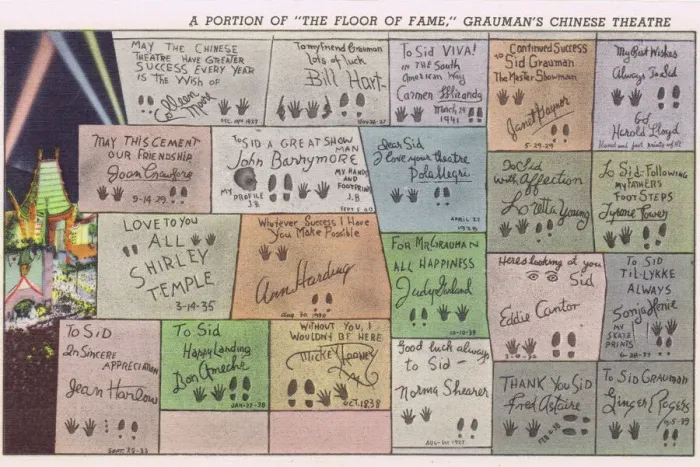 A PORTION OF "THE FLOOR OF FAME," GRAUMAN'S CHINESE THEATRE
MAY THE CHINESE
THEATRE HAVE GREATER
SUCCESS EVERY YEAR
IS THE WISH OF
Colleen Moore
To my friend Grauman
lots of luck
Bill Hart-
To Sid VIVA!
IN THE SOUTH
American Way
Carmen Miranda
March 24
1941
Continued Success
to Sid Grauman
The Master Showman
Janet Gaynor
5-29-29
My Best Wishes
Always To Sid
Harold Lloyd
MAY THIS CEMENT
OUR FRIENDSHIP
Joan Crawford
9-14-29
To SID A GREAT SHOW
MAN
John Barrymore
MY HANDS
AND
FOOTPRINTS
J.B
MY
PROFILE
J.B
Dear Sid
I love your theatre
Pola Negri
APRIL
1928
To Sid
with Affection
Loretta Young
To Sid-Following
my FATHERS
FOOT STEPS
Tyrone Power
LOVE TO YOU
ALL
SHIRLEY
TEMPLE
3-14-35
Whatever Success I Have
You Make Possible
Ann Harding
FOR MR GRAUMAN
ALL HAPPINESS
Judy Garland
10-10-39
Heres looking at you
Sid
Eddie Cantor
To SID
TIL-LYKKE
ALWAYS
Sonja Henie
MY
SKATE
PRINTS
To SiD
In Sincere
APPRECIATION
Jean Harlow
SEPT. 25-33
To Sid
Happy Landing
Don Ameche
JAN-27-38
WITHOUT YOU, I
WOULDN'T BE HERE
Mickey Rooney
OCT. 1838
Good luck always
to Sid-
Norma Shearer
THANK YOU SID
Fred Astaire
FEB-4-38
To Sid GRAUMAN
Ginger Rogers
9-5-39